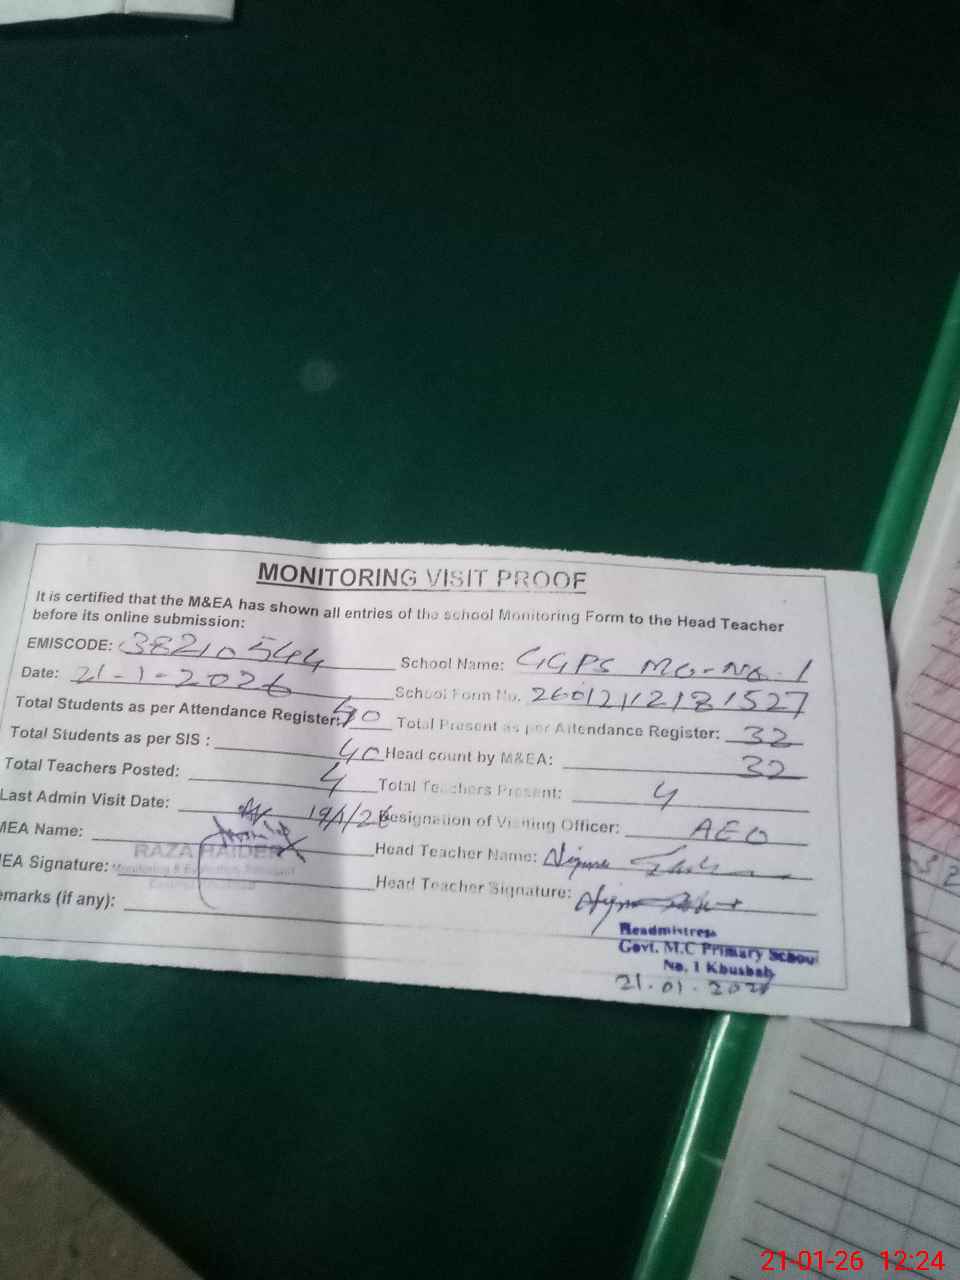 MONITORING VISIT PROOF
It is certified that the M&EA has shown all entries of the school Monitoring Form to the Head Teacher
before its online submission:
EMISCODE: 38210544 School Name: GGPS MC-No-1
Date: 21-1-2026 School Form No. 26012112181527
Total Students as per Attendance Register: 40 Total Present as per Attendance Register: 32
Total Students as per SIS : 40 Head count by M&EA: 32
Total Teachers Posted: 4 Total Teachers Present: 4
Last Admin Visit Date: 19/1/26 Designation of Visiting Officer: AEO
MEA Name: RAZA HAIDER Head Teacher Name:
EA Signature: Head Teacher Signature:
emarks (if any):
Headmistress
Govt. M.C Primary School
No. 1 Khushab
21.01.2026
21-01-26 12:24